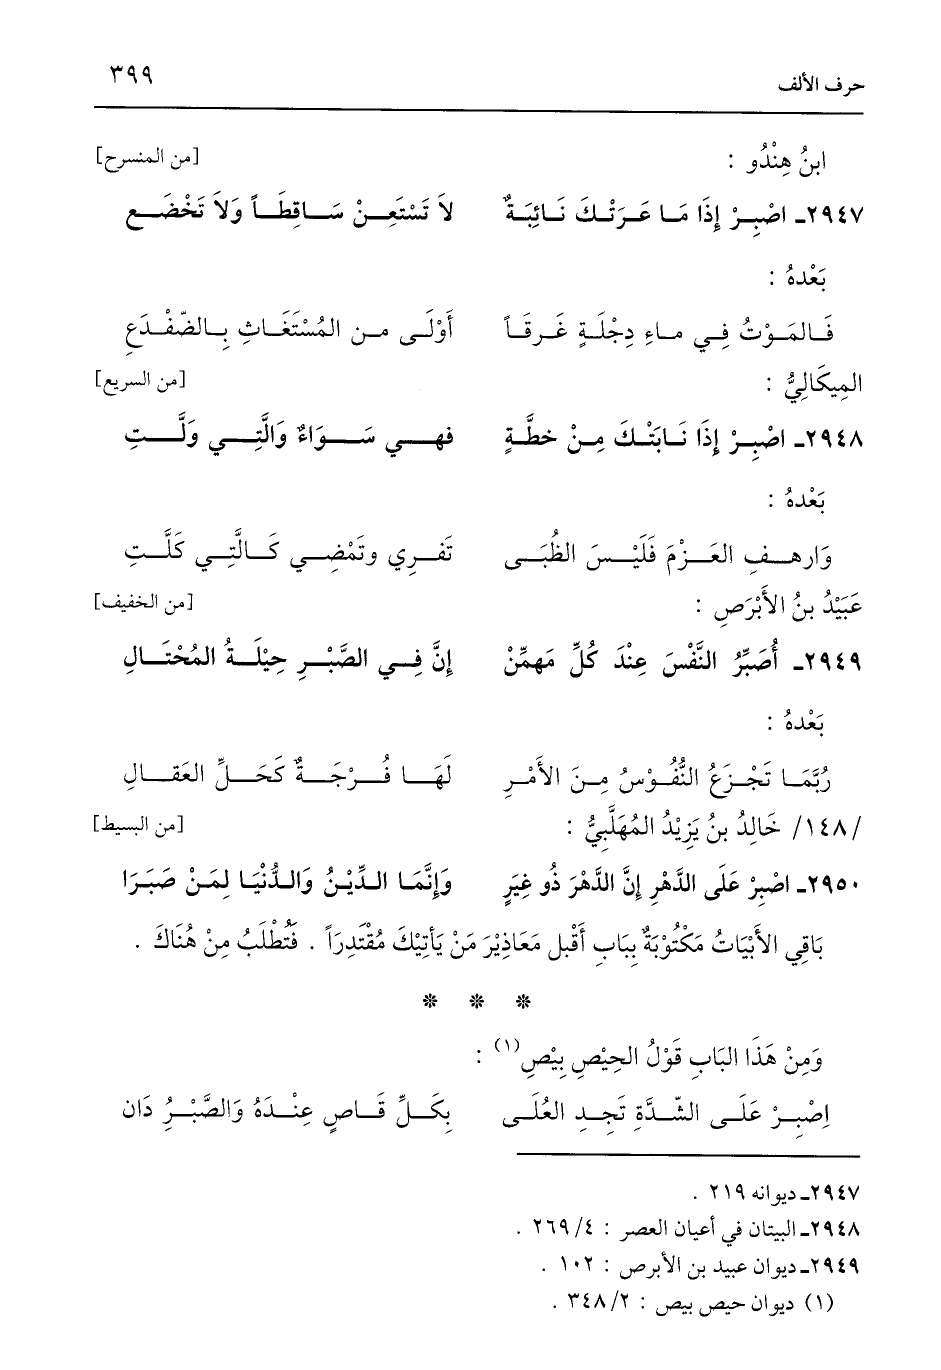 حرف الألف ٣٩٩
ابنُ هِنْدُو : [من المنسرح]
٢٩٤٧ـ اصْبِرْ إِذَا مَا عَرَتْكَ نَائِبَةٌ لاَ تَسْتَعِنْ سَاقِطَاً وَلاَ تَخْضَعِ
بَعْدهُ :
فَالمَوْتُ فِي ماءِ دِجْلَةٍ غَرقَاً أَوْلَى من المُسْتَغَاثِ بِالضّفْدَعِ
المِيكَالِيُّ : [من السريع]
٢٩٤٨ـ اصْبِرْ إِذَا نَابَتْكَ مِنْ خطَّةٍ فهي سَوَاءٌ وَالَّتِي وَلَّتِ
بَعْدهُ :
وَارهفِ العَزْمَ فَلَيْسَ الظُّبَى تَفري وتَمْضِي كَالَّتِي كَلَّتِ
عَبَيْدُ بنُ الأَبْرَصِ : [من الخفيف]
٢٩٤٩ـ أُصَبِّرُ النَّفْسَ عِنْدَ كُلِّ مَهمِّنْ إِنَّ فِي الصَّبْرِ حِيْلَةُ المُحْتَالِ
بَعْدهُ :
رُبَّمَا تَجْزَعُ النُّفُوْسُ مِنَ الأَمْرِ لَهَا فُرْجَةٌ كَحَلِّ العَقَالِ
/١٤٨/ خَالِدُ بنُ يَزِيْدُ المُهَلَّبِيُّ : [من البسيط]
٢٩٥٠ـ اصْبِرْ عَلَى الدَّهْرِ إِنَّ الدَّهْرَ ذُو غِيَرٍ وَإِنَّمَا الدِّيْنُ وَالدُّنْيَا لِمَنْ صَبَرَا
بَاقِي الأَبْيَاتُ مَكْتُوْبَةٌ بِبَابِ أَقْبل مَعَاذِيْرَ مَنْ يَأتِيْكَ مُقْتَدِرَاً . فَتُطْلَبُ مِنْ هُنَاكَ .
* * *
وَمِنْ هَذَا البَابِ قَوْلُ الحِيْصِ بِيْصِ(١) :
اِصْبِرْ عَلَى الشّدَّةِ تَجِد العُلَى بِكَلِّ قَاصٍ عِنْدَهُ وَالصَّبْرُ دَان
٢٩٤٧ـ ديوانه ٢١٩ .
٢٩٤٨ـ البيتان في أعيان العصر : ٤/ ٢٦٩ .
٢٩٤٩ـ ديوان عبيد بن الأبرص : ١٠٢ .
(١) ديوان حيص بيص : ٢/ ٣٤٨ .